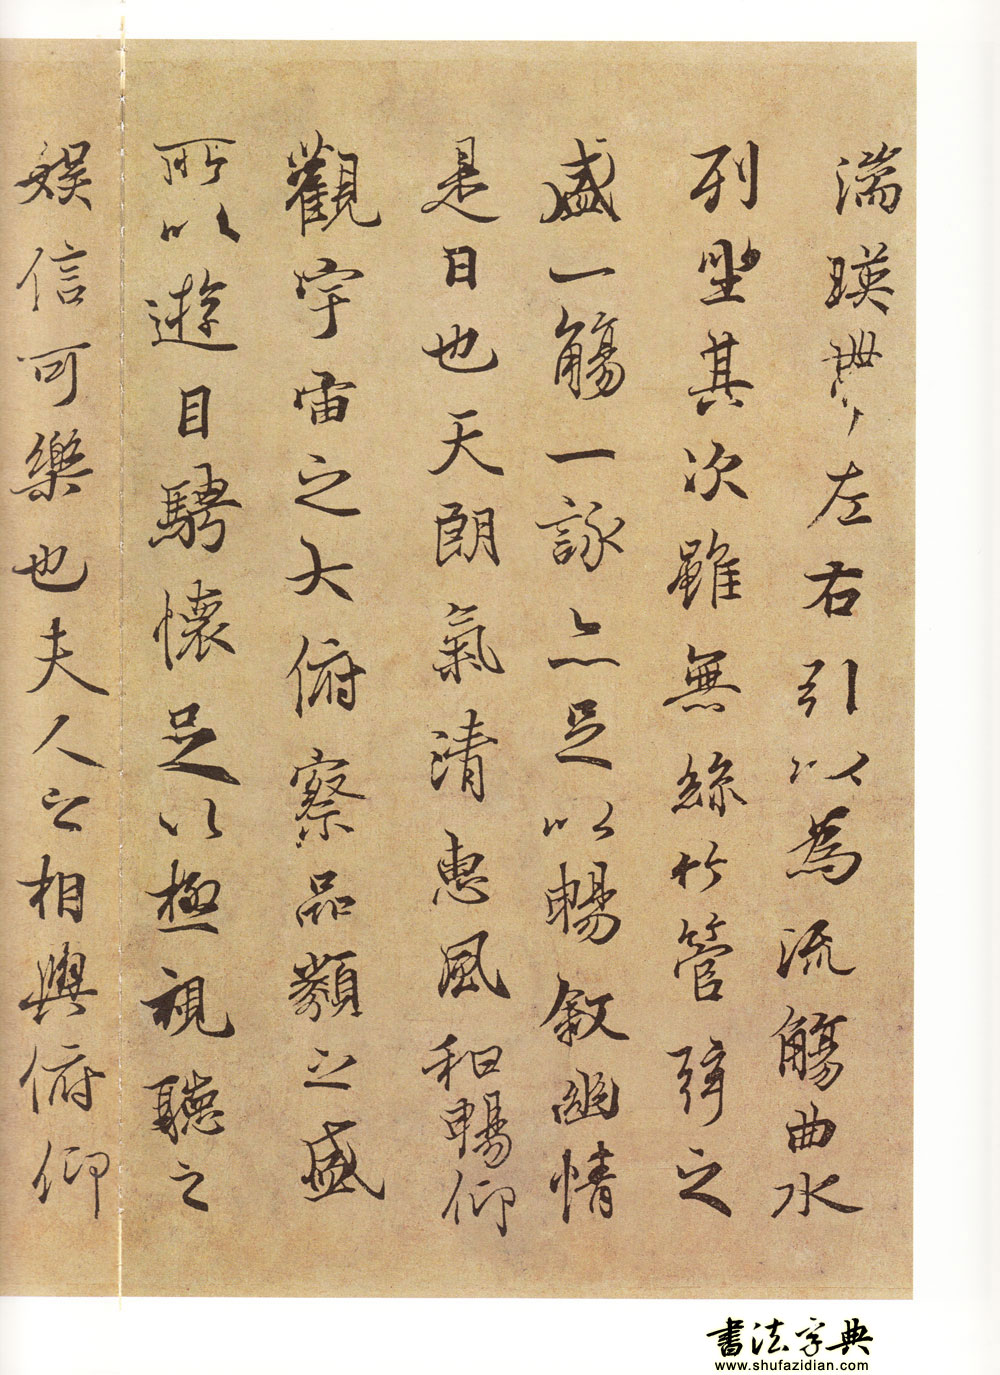 湍暎帶左右引以為流觴曲水
列坐其次雖無絲竹管弦之
盛一觴一詠亦足以暢叙幽情
是日也天朗氣清惠風和暢仰
觀宇宙之大俯察品類之盛
所以遊目騁懷足以極視聽之
娛信可樂也夫人之相與俯仰
書法字典
www.shufazidian.com